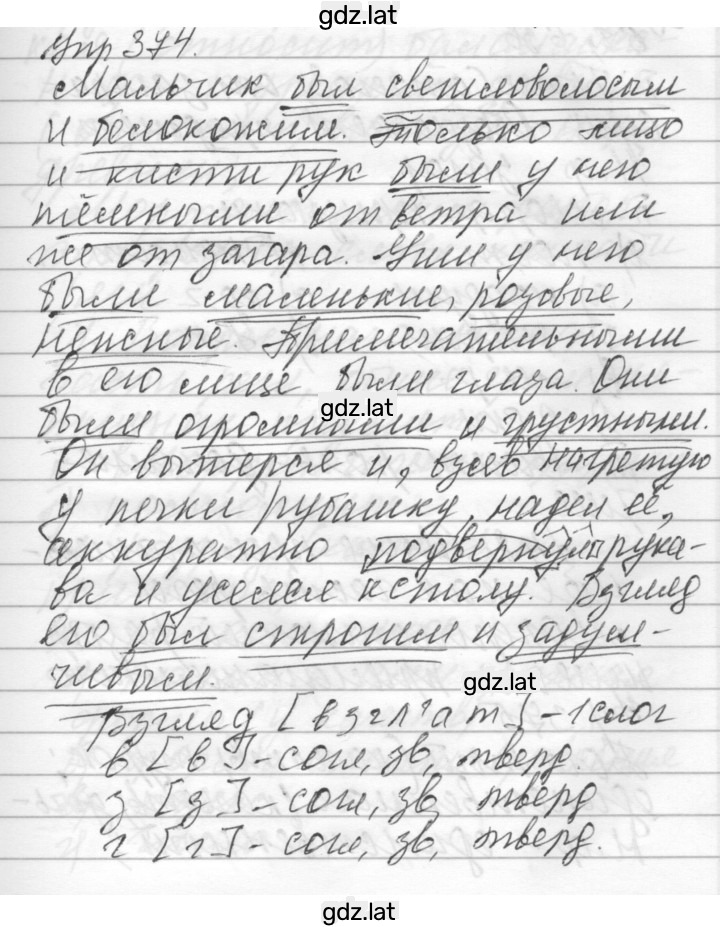 gdz.lat
Упр 374.
Мальчик был светловолосым
и белокожим. Только лицо
и кисти рук были у него
тёмными от ветра или
же от загара. Уши у него
были маленькие, розовые,
нежные. Примечательными
в его лице были глаза. Они
gdz.lat
были огромными и грустными.
Он вытерся и, взяв нагретую
у печки рубашку, надел её,
аккуратно подвернул рука-
ва и уселся к столу. Взгляд
его был строгим и задум-
чивым.
gdz.lat
Взгляд [взгл'ат] - 1 слог
в [в] - согл, зв, тверд.
з [з] - согл, зв, тверд
г [г] - согл, зв, тверд.
gdz.lat